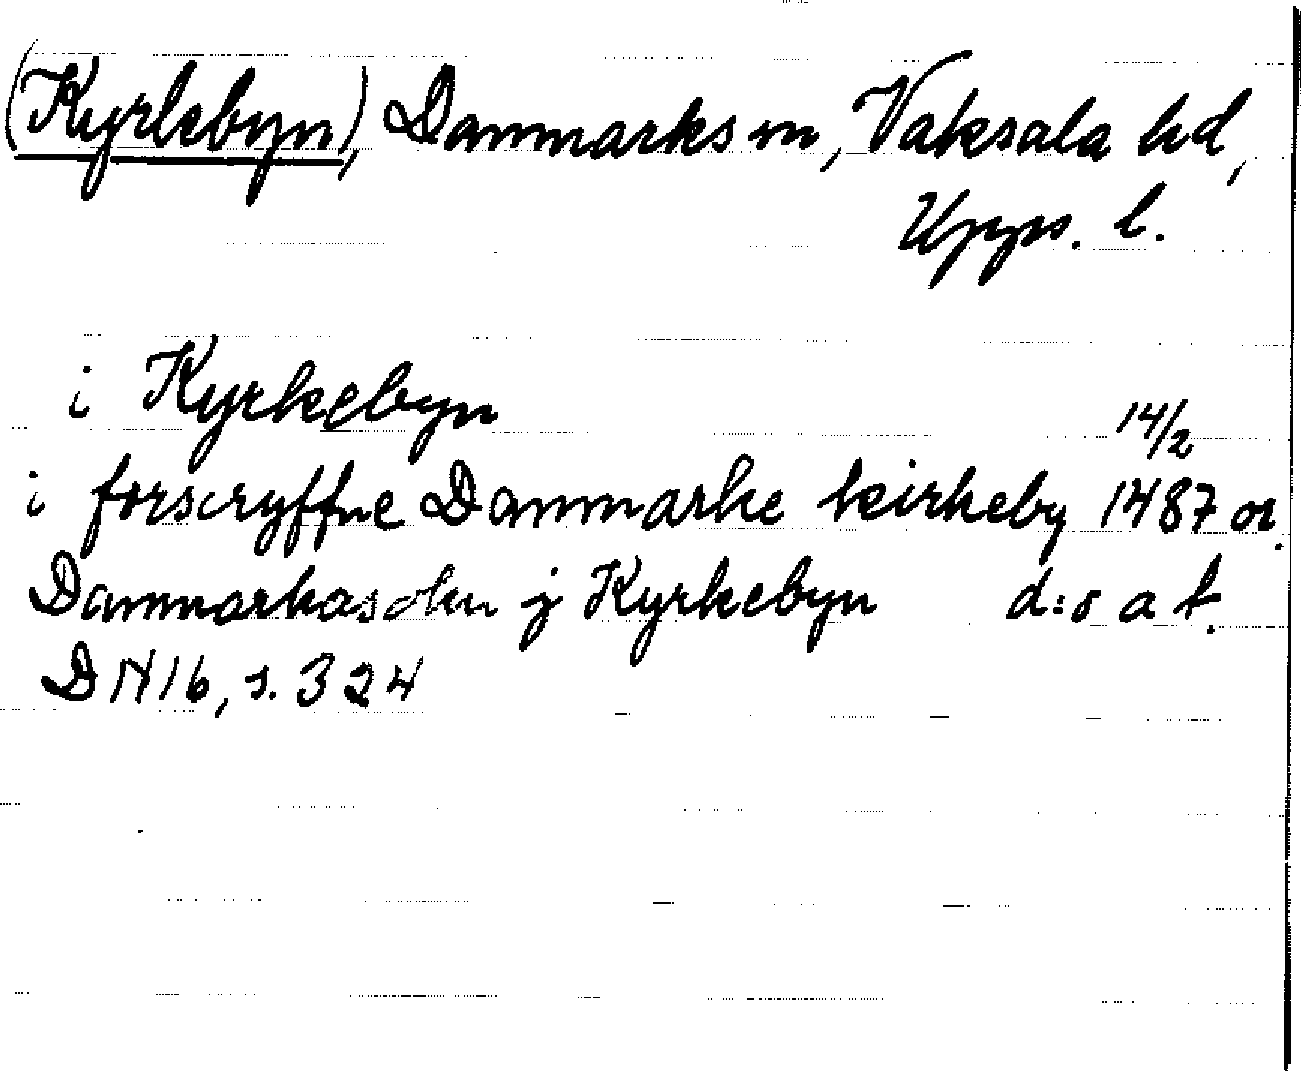 (Kyrkebyn), Danmarks sn, Vaksala hd,
Upps. l.
i Kyrkebyn
14/2
i forscryffne Danmarke kirkeby 1487 or.
Danmarkasokn j Kyrkebyn d:o a t.
DN 16, s. 324